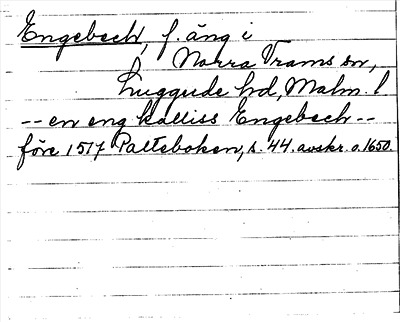 Engebech, f. äng i
Norra Vrams sn,
Luggude hd, Malm. l.
-- en eng kalliss Engebech --
före 1517 Palteboken, s. 44. avskr. o. 1650.